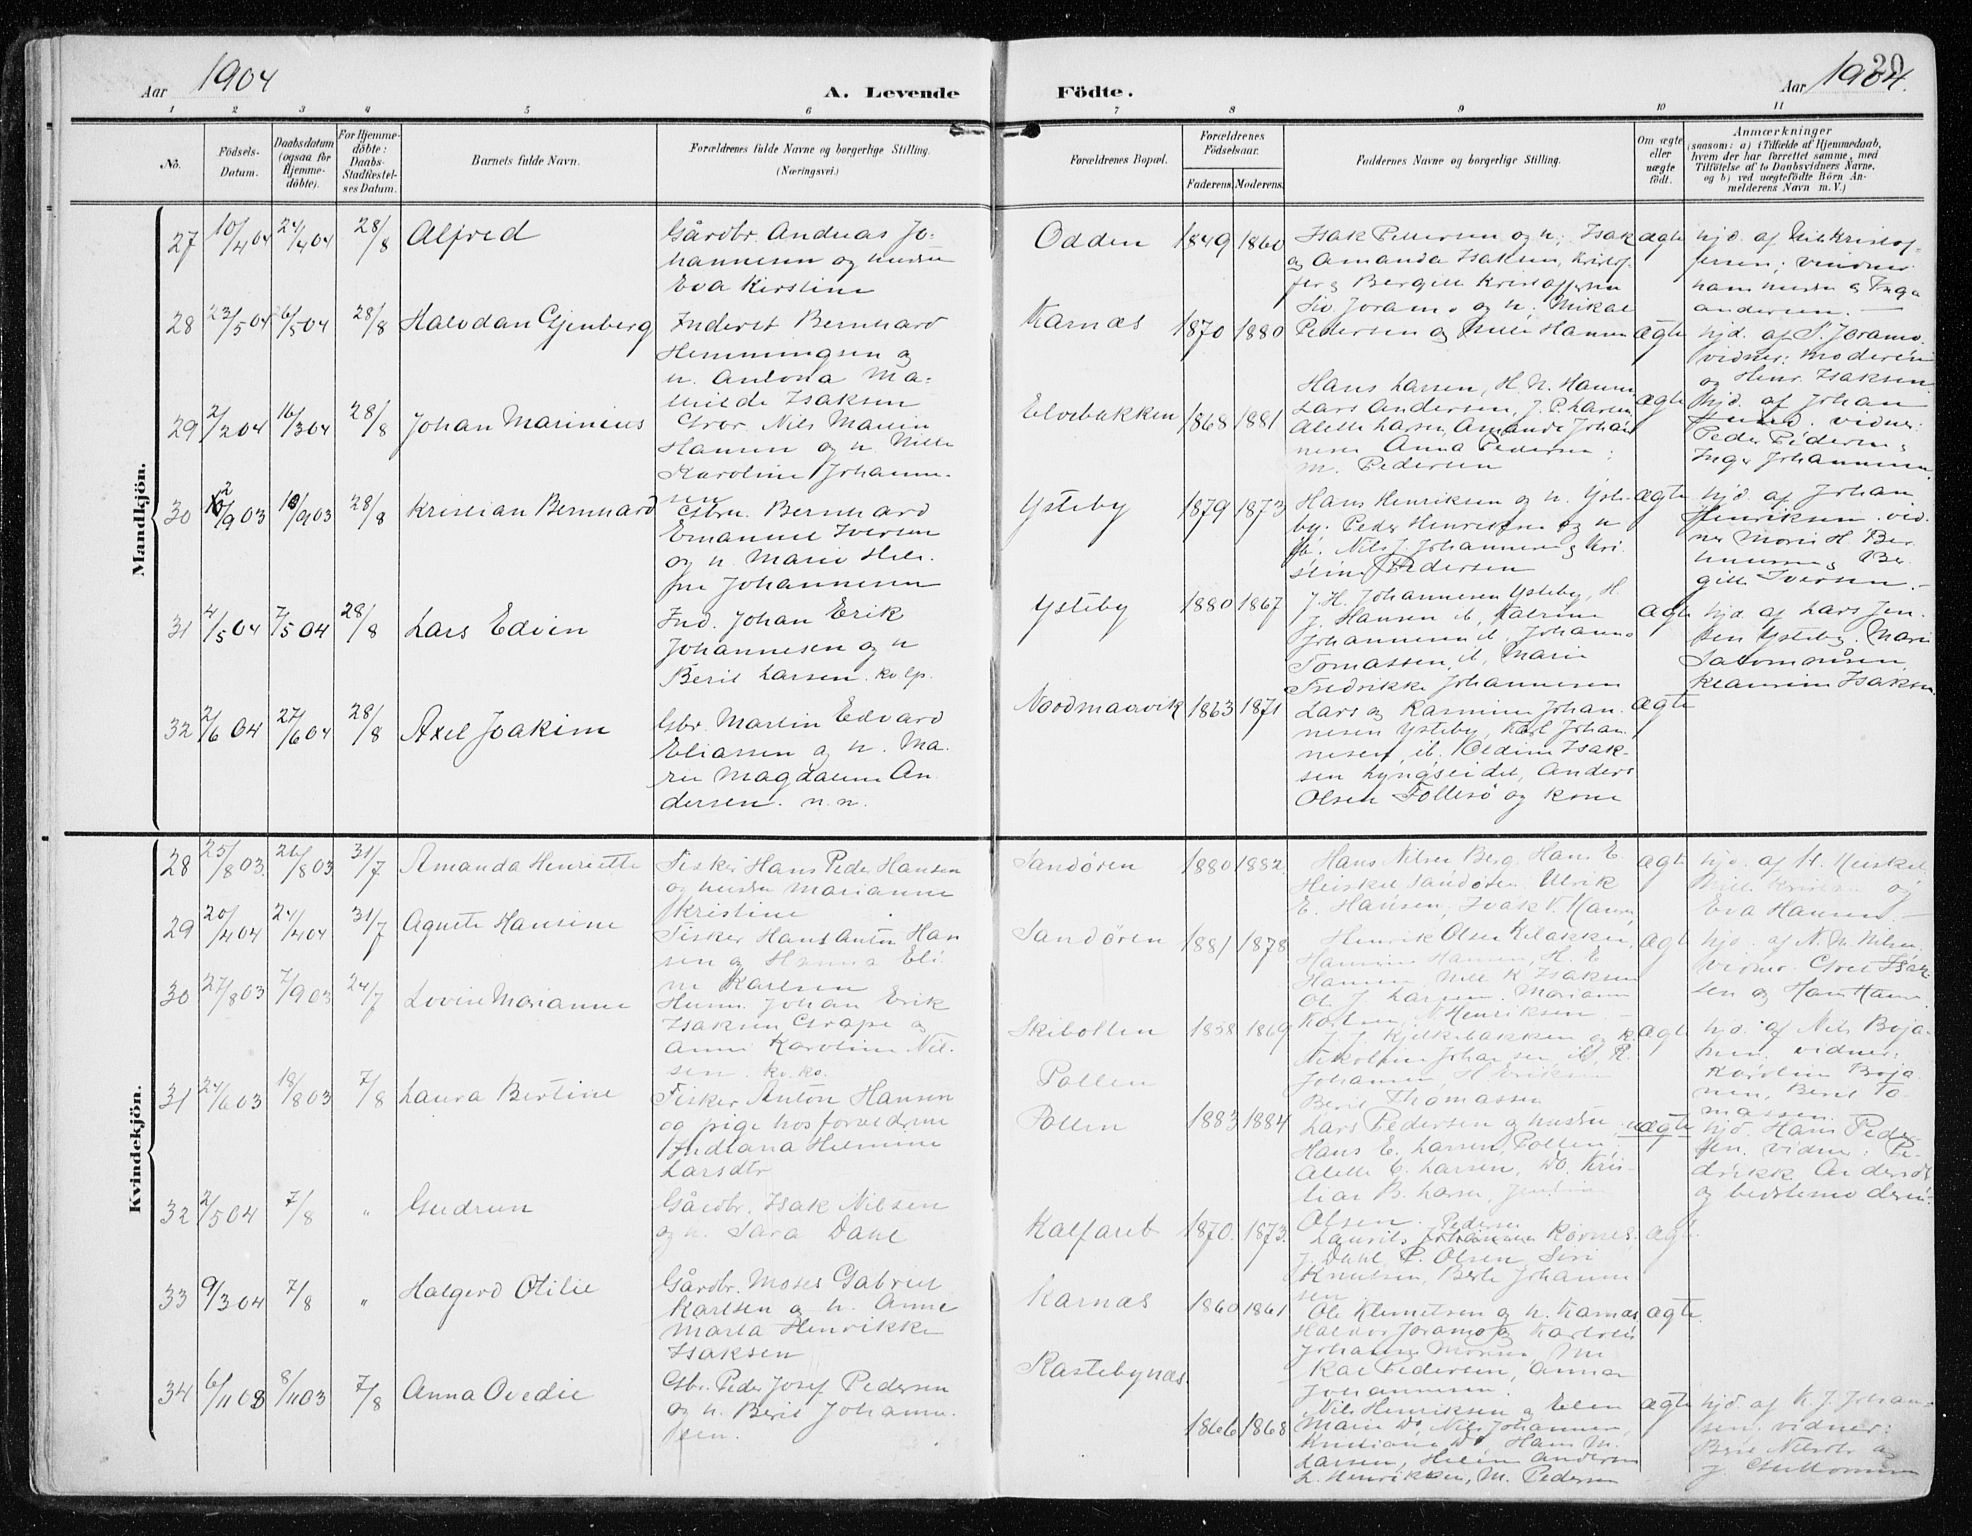 Aar 1904
A. Levende
Födte.
Aar 1904.
20
1 2 3 4 5 6 7 8 9 10 11
No.
Födsels-Datum.
Daabsdatum (ogsaa for Hjemmedöbte).
For Hjemmedöbte: Daabs-Stadfæstelses Datum.
Barnets fulde Navn.
Forældrenes fulde Navne og borgerlige Stilling. (Næringsvei.)
Forældrenes Bopæl.
Forældrenes Födselsaar.
Faderens. Moderens.
Faddernes Navne og borgerlige Stilling.
Om ægte eller uægte födt.
Anmærkninger (saasom: a) i Tilfælde af Hjemmedaab, hvem der har forrettet samme, med Tilföielse af to Daabsvidners Navne, og b) ved uægtefödte Börn Anmelderens Navn m. V.)
Mandkjön.
27 10/4 04 24/4 04 28/8 Alfred
Gårdbr. Andreas Jo-
hannesen og hustru
Eva Kirstine
Odden 1849 1860
Isak Pedersen og h; Isak
og Amanda Isaksen, Kristof-
fer og Bergitt Kristoffersen
ægte
hjd. af Nils Kristof-
fersen; vidner
hans hustru & Inga
andersen. —
28 23/5 04 26/5 04 28/8 Halvdan Gjenberg
Inderst Bernhard
Hemmingsen og
h. Antona Ma-
thilde Isaksen
Karnæs 1870 1880
Siv Joramo og h, Mikal
Pedersen og Nille Hansen
ægte
hjd. af S. Joramo.
vidner: moderen
og Henr. Isaksen
29 2/2 04 16/3 04 28/8 Johan Marinius
Gbr. Nils Martin
Hansen og h. Nille
Karoline Johanne-
sen
Elvebakken 1868 1881
Hans Larsen, H. N. Hansen
Lars Andersen, J. P. Larsen
Alette Larsen, Amanda Johan-
nesen Anna Pedersen;
M. Pedersen
ægte
hjd. af Johan
vidner:
Peder Pedersen &
Inger Johannesen
30 2/9 03 10/9 03 28/8 Kristian Bernhard
Gbr. Bernhard
Emanuel Iversen
og h. Marie Hele-
ne Johannesen
Ysteby 1879 1873
Hans Henriksen og h. Yste-
by. Peder Henriksen og h
ib. Nils J. Johannesen & Kri-
stine Pedersen
ægte
hjd. af Johan
Henriksen. vid-
ner Marie H. Ber
& Ber-
gitte Iversen. —
31 4/5 04 7/5 04 28/8 Lars Edvin
Ind. Johan Erik
Johannesen og h
Berit Larsen. kv lp.
Ysteby 1880 1867
J. H. Johannesen Ysteby, H.
J. Hansen ib, Katrine
Johannesen ib. Johan
Tomassen, ib, Marie
Fredrikke Johannesen
ægte
hjd af Lars Jen-
sen Ysteby. Marie
Salomonsen,
Klaurine Isaksen
32 2/6 04 27/6 04 28/8 Axel Joakim
Gbr. Martin Edvard
Eliassen og h. Ma-
rie Magdalene An-
dersen. n.n.
Nordmannvik 1863 1871
Lars og Rasmine Johan-
nesen Ysteby, Karl Johan-
nesen, ib. Oldine Isak-
sen Lyngseidet, Anders
Olsen Follesö og kone
ægte
Kvindekjön.
28 25/8 03. 26/8 03 31/7 Amanda Henriette
Fisker Hans Peder Hansen
og hustru Marianne
Kristine
Sandören 1880 1882
Hans Nilsen Berg. Hans E.
Heiskel Sandören Ulrik
E. Hansen, Isak V. Hansen
ægte
hjd. af H. Heiskel
og
Eva Hansen. —
29 20/4 04 24/4 04 31/7 Agnete Hansine
Fisker Hans Anton Han-
sen og Hanna Eli-
ne Karlsen
Sandören 1881 1878
Henrik Olsen Kilbakken,
Hansine Hansen, H. E
Hansen Nille K Isaksen
Ol. J. Larsen. Mariann
Karlsen, N Henriksen
ægte
hjd. af N. M. Nilsen
vidner. Grete Isak-
sen og Hans Hansen
30 27/8 03 7/9 03 24/7 Lovise Marianne
Husm. Johan Erik
Isaksen Grape og
Anne Karoline Nil-
sen. kv. kv.
Skibotten 1858 1869
J. J. Kjelkebakken og k.
Nikoline Johansen ib. R.
Johansen, H. Eriksen
Berit Thomassen
ægte
hjd. af Nils Beja-
sen. vidner:
Karolin Beja-
sen, Berit To-
massen.
Pollen
31 24/6 03 18/8 03 7/8 Laura Bertine
Fisker Anton Hansen
og pige hos forældrene
Indiana Helmine
Larsdtr
Pollen 1883 1884
Lars Pedersen og hustru
Hans E. Larsen, Pollen,
Alette E. Larsen, do. Kris-
tian B. Larsen,
Olsen.
uægte
hjd. Hans Peder-
sen. vidner: Pe-
drikk Andersdt
og bedstemoderen.
32 2/5 04 7/8 " Gudrun
Gårdbr. Isak Nilsen
og h. Sara Dahl
Kalfaret 1870. 1873.
Laurits Johansen Pedersen Kornes,
J. Dahl P. Olsen Siri
Knutsen, Berte Johanne-
sen
ægte
33 9/3 04 7/8 " Halgerd Otilie
Gårdbr. Moses Gabriel
Karlsen og h. Anne
Marta Henrikke
Isaksen
Karnæs 1860 1861
Ole Klemetsen og h. Karnæs
Haldor Joramo og
Johanne
Kar Pedersen, Anna
Johannesen.
ægte
34 6/11 03 8/11 03 7/8 Anna Ovedie
Gbr. Peder Josef Pedersen
og h. Berit Johanne-
sen.
Rastebynæs. 1866 1868
Nils Henriksen og Elen
Marie do, Nils Johannesen,
Kristiane do, Hans M.
Larsen, Helene Andersen
L. Henriksen, M. Pedersen
ægte
hjd. af K. J. Johan-
sen. vidner:
Berit Nilsdtr og
J Guttormsen